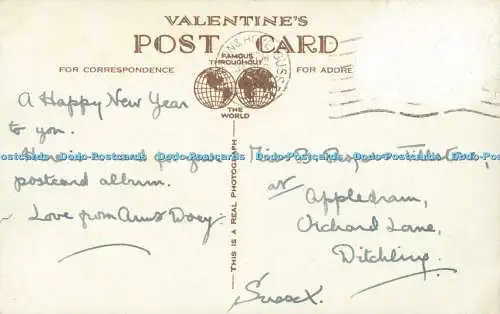 VALENTINE'S
POST CARD
FAMOUS THROUGHOUT
THE WORLD
FOR CORRESPONDENCE
FOR ADDRE
THIS IS A REAL PHOTOGRAPH
A Happy New Year
to you.
card for your
postcard album.
Love from
Dodo-Postcards Dodo-Postcards Dodo-Postcards Dodo-Postcards Dodo-Postcards
Miss
at
Appledram,
Orchard Lane,
Ditchling.
Sussex.